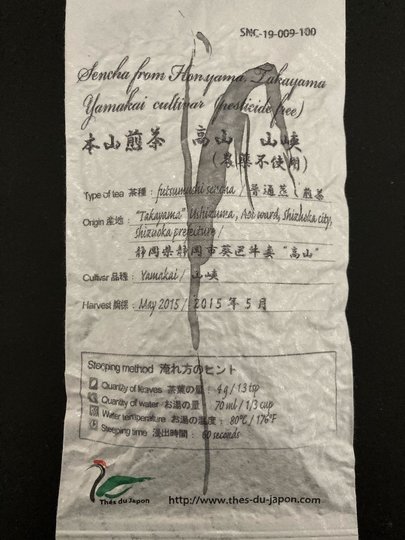 SNC-19-009-100
Sencha from Honyama, Takayama
Yamakai cultivar (pesticide free)
本山煎茶 高山 山峡
(農薬不使用)
Type of tea 茶種 : futsumushi sencha / 普通蒸し煎茶
Origin 産地 : "Takayama" Ushizuma, Aoi ward, Shizuoka city,
Shizuoka prefecture /
静岡県静岡市葵区牛妻 "高山"
Cultivar 品種 : Yamakai / 山峡
Harvest 摘採 : May 2015 / 2015年5月
Steeping method 淹れ方のヒント
Quantity of leaves 茶葉の量 : 4g / 1.3 tsp
Quantity of water お湯の量 : 70 ml / 1/3 cup
Water temperature お湯の温度 : 80℃ / 176°F
Steeping time 浸出時間 : 60 seconds
Thés du Japon
http://www.thes-du-japon.com